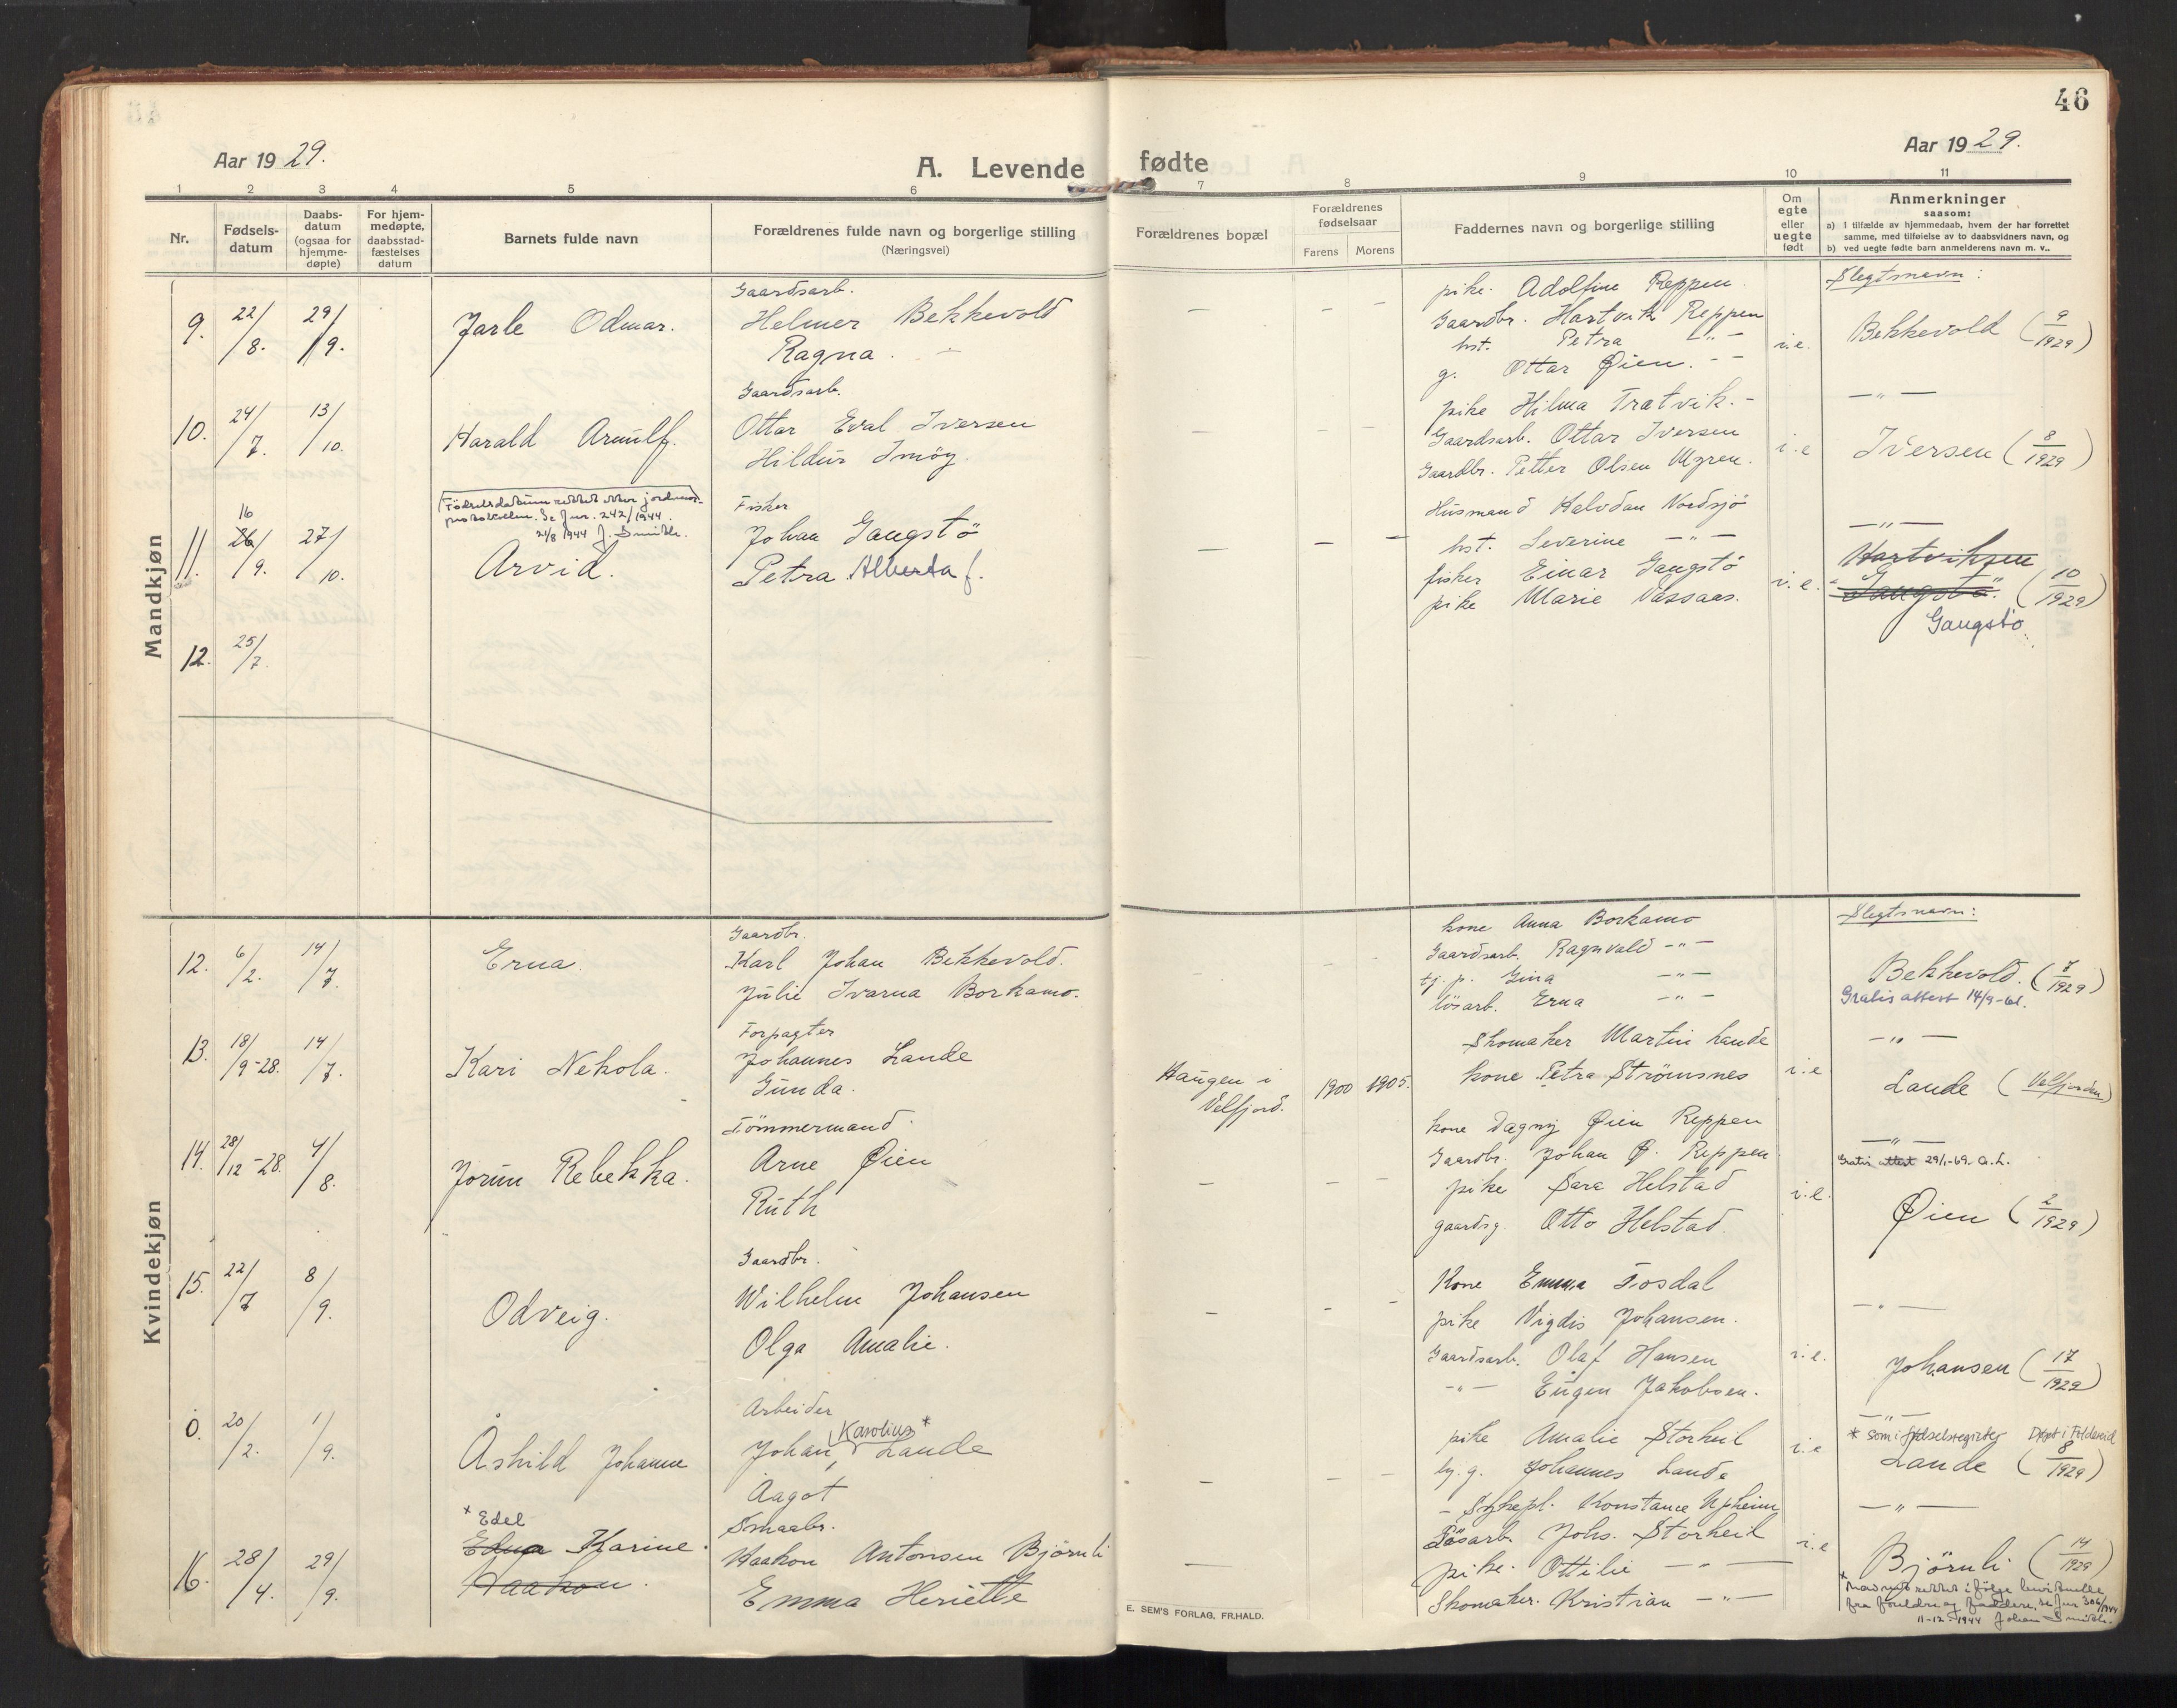 46
Aar 1929.
A. Levende fødte
Aar 1929.
1 2 3 4 5 6 7 8 9 10 11
Nr.
Fødsels-
datum
Daabs-
datum
(ogsaa for
hjemme-
døpte)
For hjem-
medøpte,
daabsstad-
fæstelses
datum
Barnets fulde navn
Forældrenes fulde navn og borgerlige stilling
(Næringsvei)
Forældrenes bopæl
Forældrenes
fødselsaar
Farens Morens
Faddernes navn og borgerlige stilling
Om
egte
eller
uegte
født
Anmerkninger
saasom:
a) I tilfælde av hjemmedaab, hvem der har forrettet
samme, med tilføielse av to daabsvidners navn, og
b) ved uegte fødte barn anmelderens navn m. v..
Mandkjøn
Slegtsnavn:
9. 22/8. 29/9. Jarle Odmar.
Gaardsarb.
Helmer Bekkevold
Ragna. -
- - -
pike. Adolfine Reppen.
Gaardbr. Hartvik Reppen
hst. Petra -"-
g. Ottar Øien. - -
i.e.
Bekkevold (9/1929)
10. 24/7. 13/10. Harald Arnulf.
Gaardsarb.
Ottar Eval Iversen
Hildur Imöy.
- - -
pike Hilma Tratvik. -
Gaardsarb. Ottar Iversen
Gaardbr. Petter Olsen Mgren.
i.e
-"-
Iversen (8/1929)
11. 16 26/9. 27/10.
Fødselsdatum rettet etter jordmor-
protokollen. Se Jnr. 242/1944.
21/8 1944 J. Smith.
Arvid.
Fisker
Johan Gangstö
Petra Alberta f.
- - -
Husmand Halvdan Nordsjö
hst. Severine -"-
fisker Einar Gangstö
pike Marie Vassaas.
i.e.
-"-
Hartviksen
Gangstö. (10/1929)
Gangstö.
12. 25/7.
Kvindekjøn
Slegtsnavn:
12. 6/2. 14/7. Erna.
Gaardbr.
Karl Johan Bekkevold.
Julie Ivarna Borkamo.
kone Anna Borkamo
Gaardsarb. Ragnvald -"-
tj. p. Gina -"-
lösarb. Erna -"-
Bekkevold. (7/1929)
Gratis attest 14/9-61.
13. 18/9-28. 14/7. Kari Nekola.
Forpagter
Johannes Lande
Gunda.
Haugen i
Velfjord.
1900 1905.
Skomaker Martin Lande
kone Petra Strömsnes
i.e
-"-
Lande (Velfjorden)
14. 28/12-28. 4/8. Jorun Rebekka.
Tömmermand.
Arne Øien
Ruth
- - -
kone Dagny Øien Reppen
Gaardbr. Johan Ø. Reppen
pike Sara Helstad
gaardsg. Otto Helstad.
i.e.
-"-
Gratis attest 29/1-69. A.L.
Øien (2/1929)
15. 22/7 8/9. Odveig.
Gaardbr.
Wilhelm Johansen
Olga Amalie.
- - -
Kone Emma Fosdal
pike Vigdis Johansen.
Gaardsarb. Olaf Hansen
-"- Eugen Jakobsen.
i.e.
-"-
Johansen (17/1929)
0. 20/2. 1/9. Åshild Johanne
Arbeider
Johan Karolius* Lande
Aagot
- - -
pike Amalie Storheil
Johannes Lande
- Sykepl. Konstance Upheim
i.e
-"-
* som i fødselsregister Døpt i Foldereid
Lande (8/1929)
16. 28/4. 29/9.
* Edel
Edna Karine.
Haakon.
Smaabr.
Haakon Antonsen Björnli
Emma Heriette
-
Lösarb. Johs. Storheil
pike. Ottilie -"-
Skomaker. Kristian -"-
i.e
-"-
Björnli (14/1929)
* Navnet rettet i følge
fra foreldre og faddere, se Jnr 306/1944
11-12-1944 Johan Smith.
E. SEM'S FORLAG, FR.HALD.